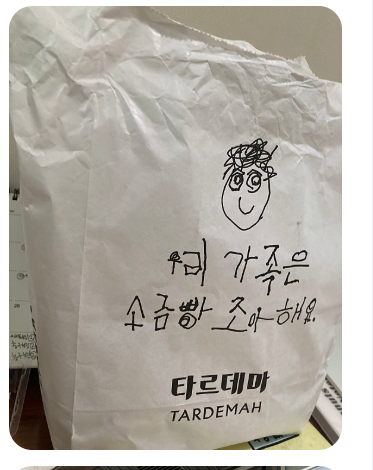 우리 가족은
소금빵 조아해요.
타르데마
TARDEMAH